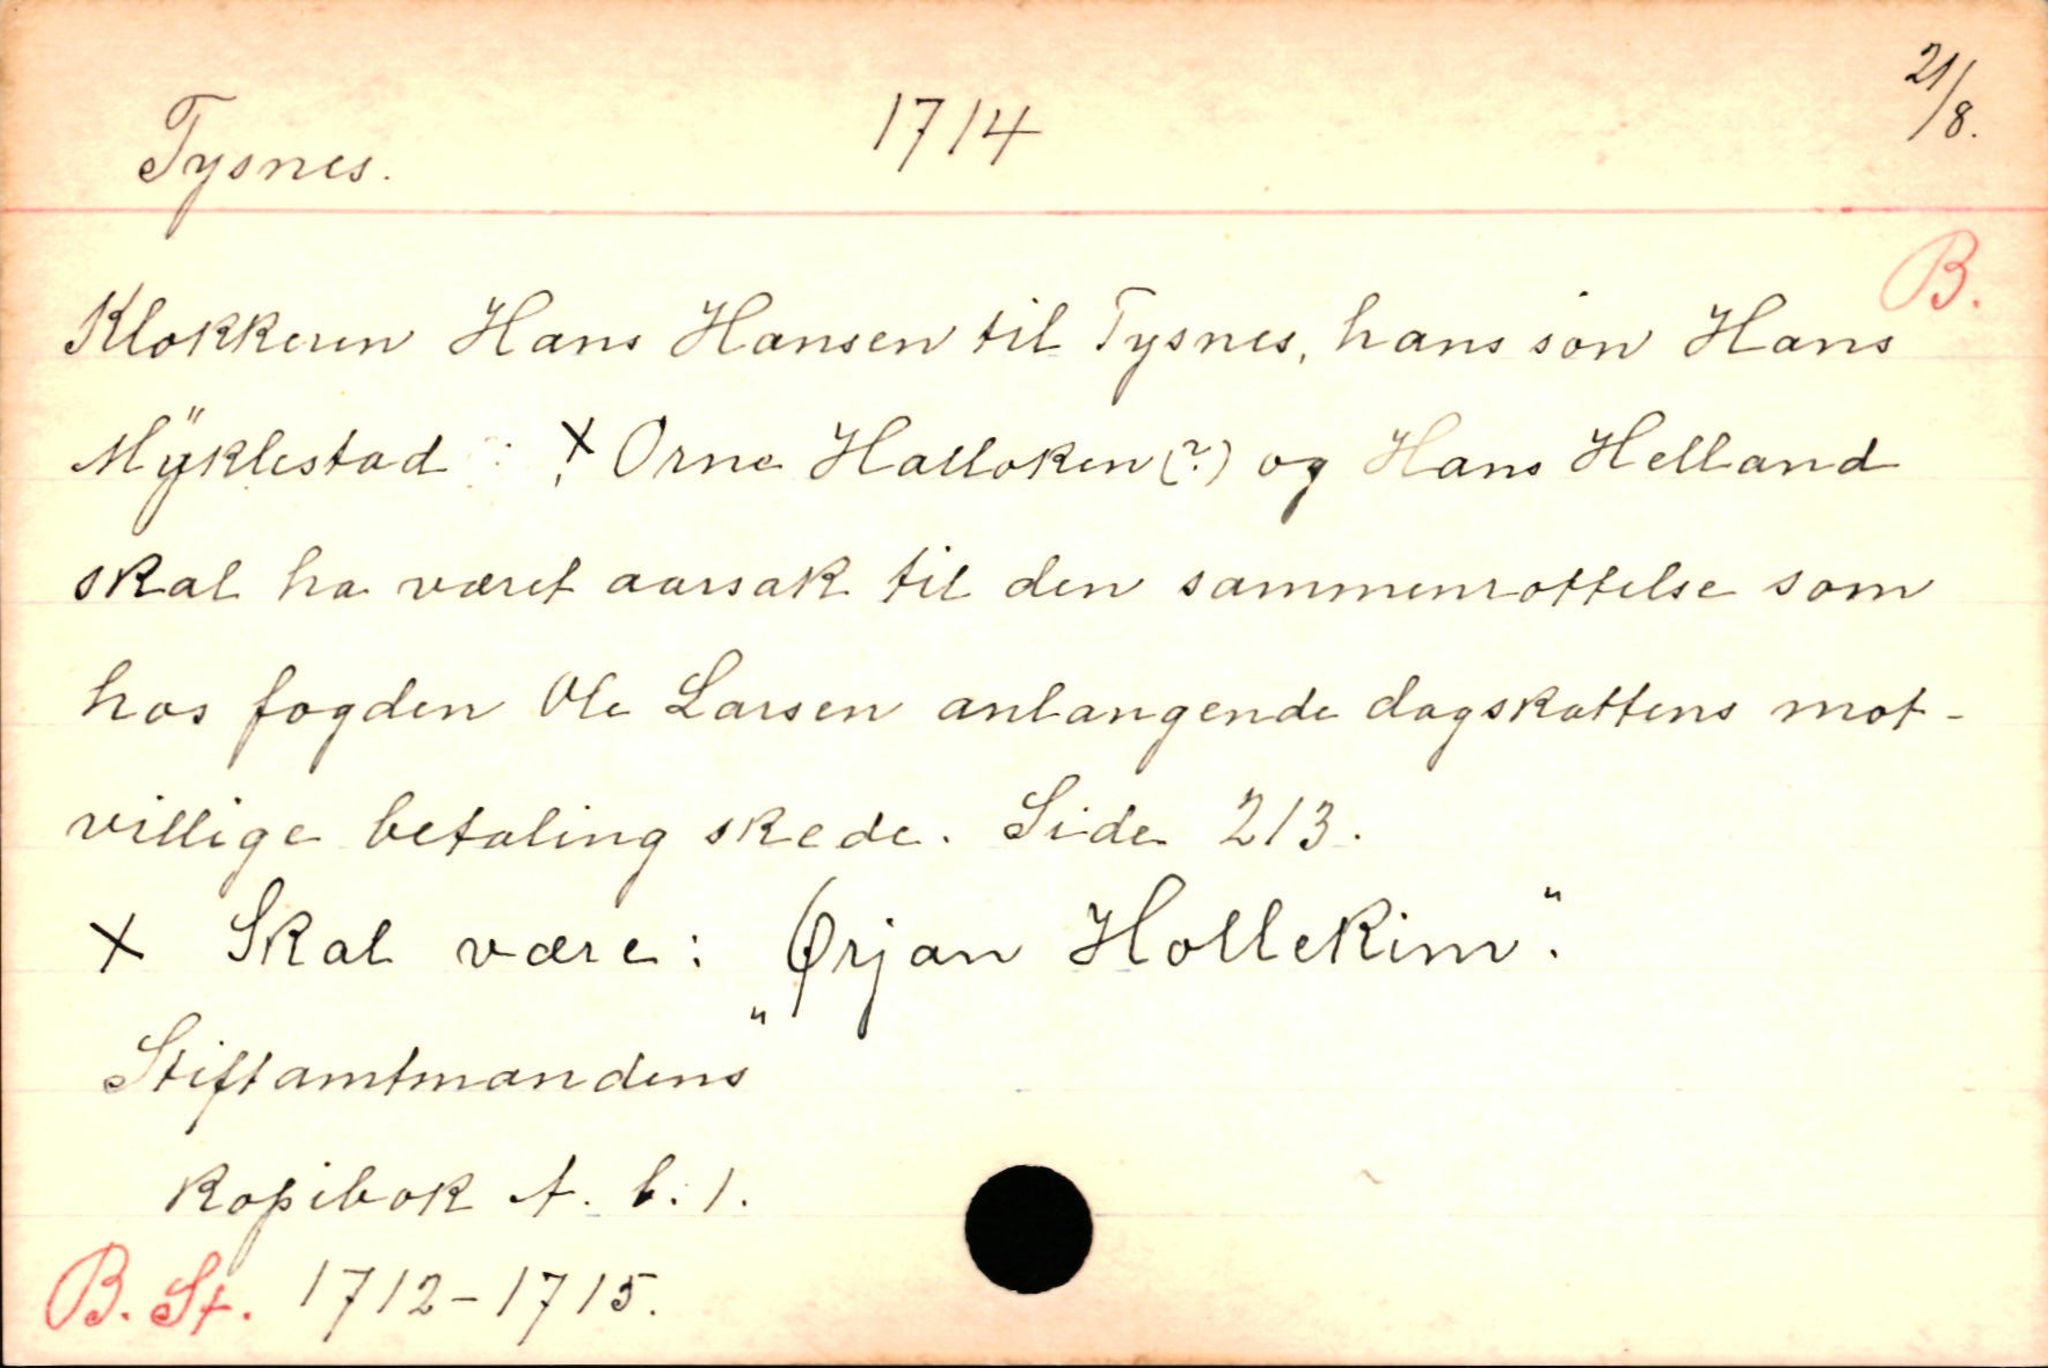 Tysnes. 1714 21/8.
B.
Klokkeren Hans Hansen til Tysnes, hans søn Hans
Mÿklestad, X Orne Halloken (?) og Hans Helland
skal ha været aarsak til den sammenrottelse som
hos fogden Ole Larsen anlangende dagskattens mot-
villige betaling skede. Side 213.
X Skal være: "Ørjan Hollekim".
Stiftamtmandens
kopibok A. b. 1.
B. St. 1712-1715.